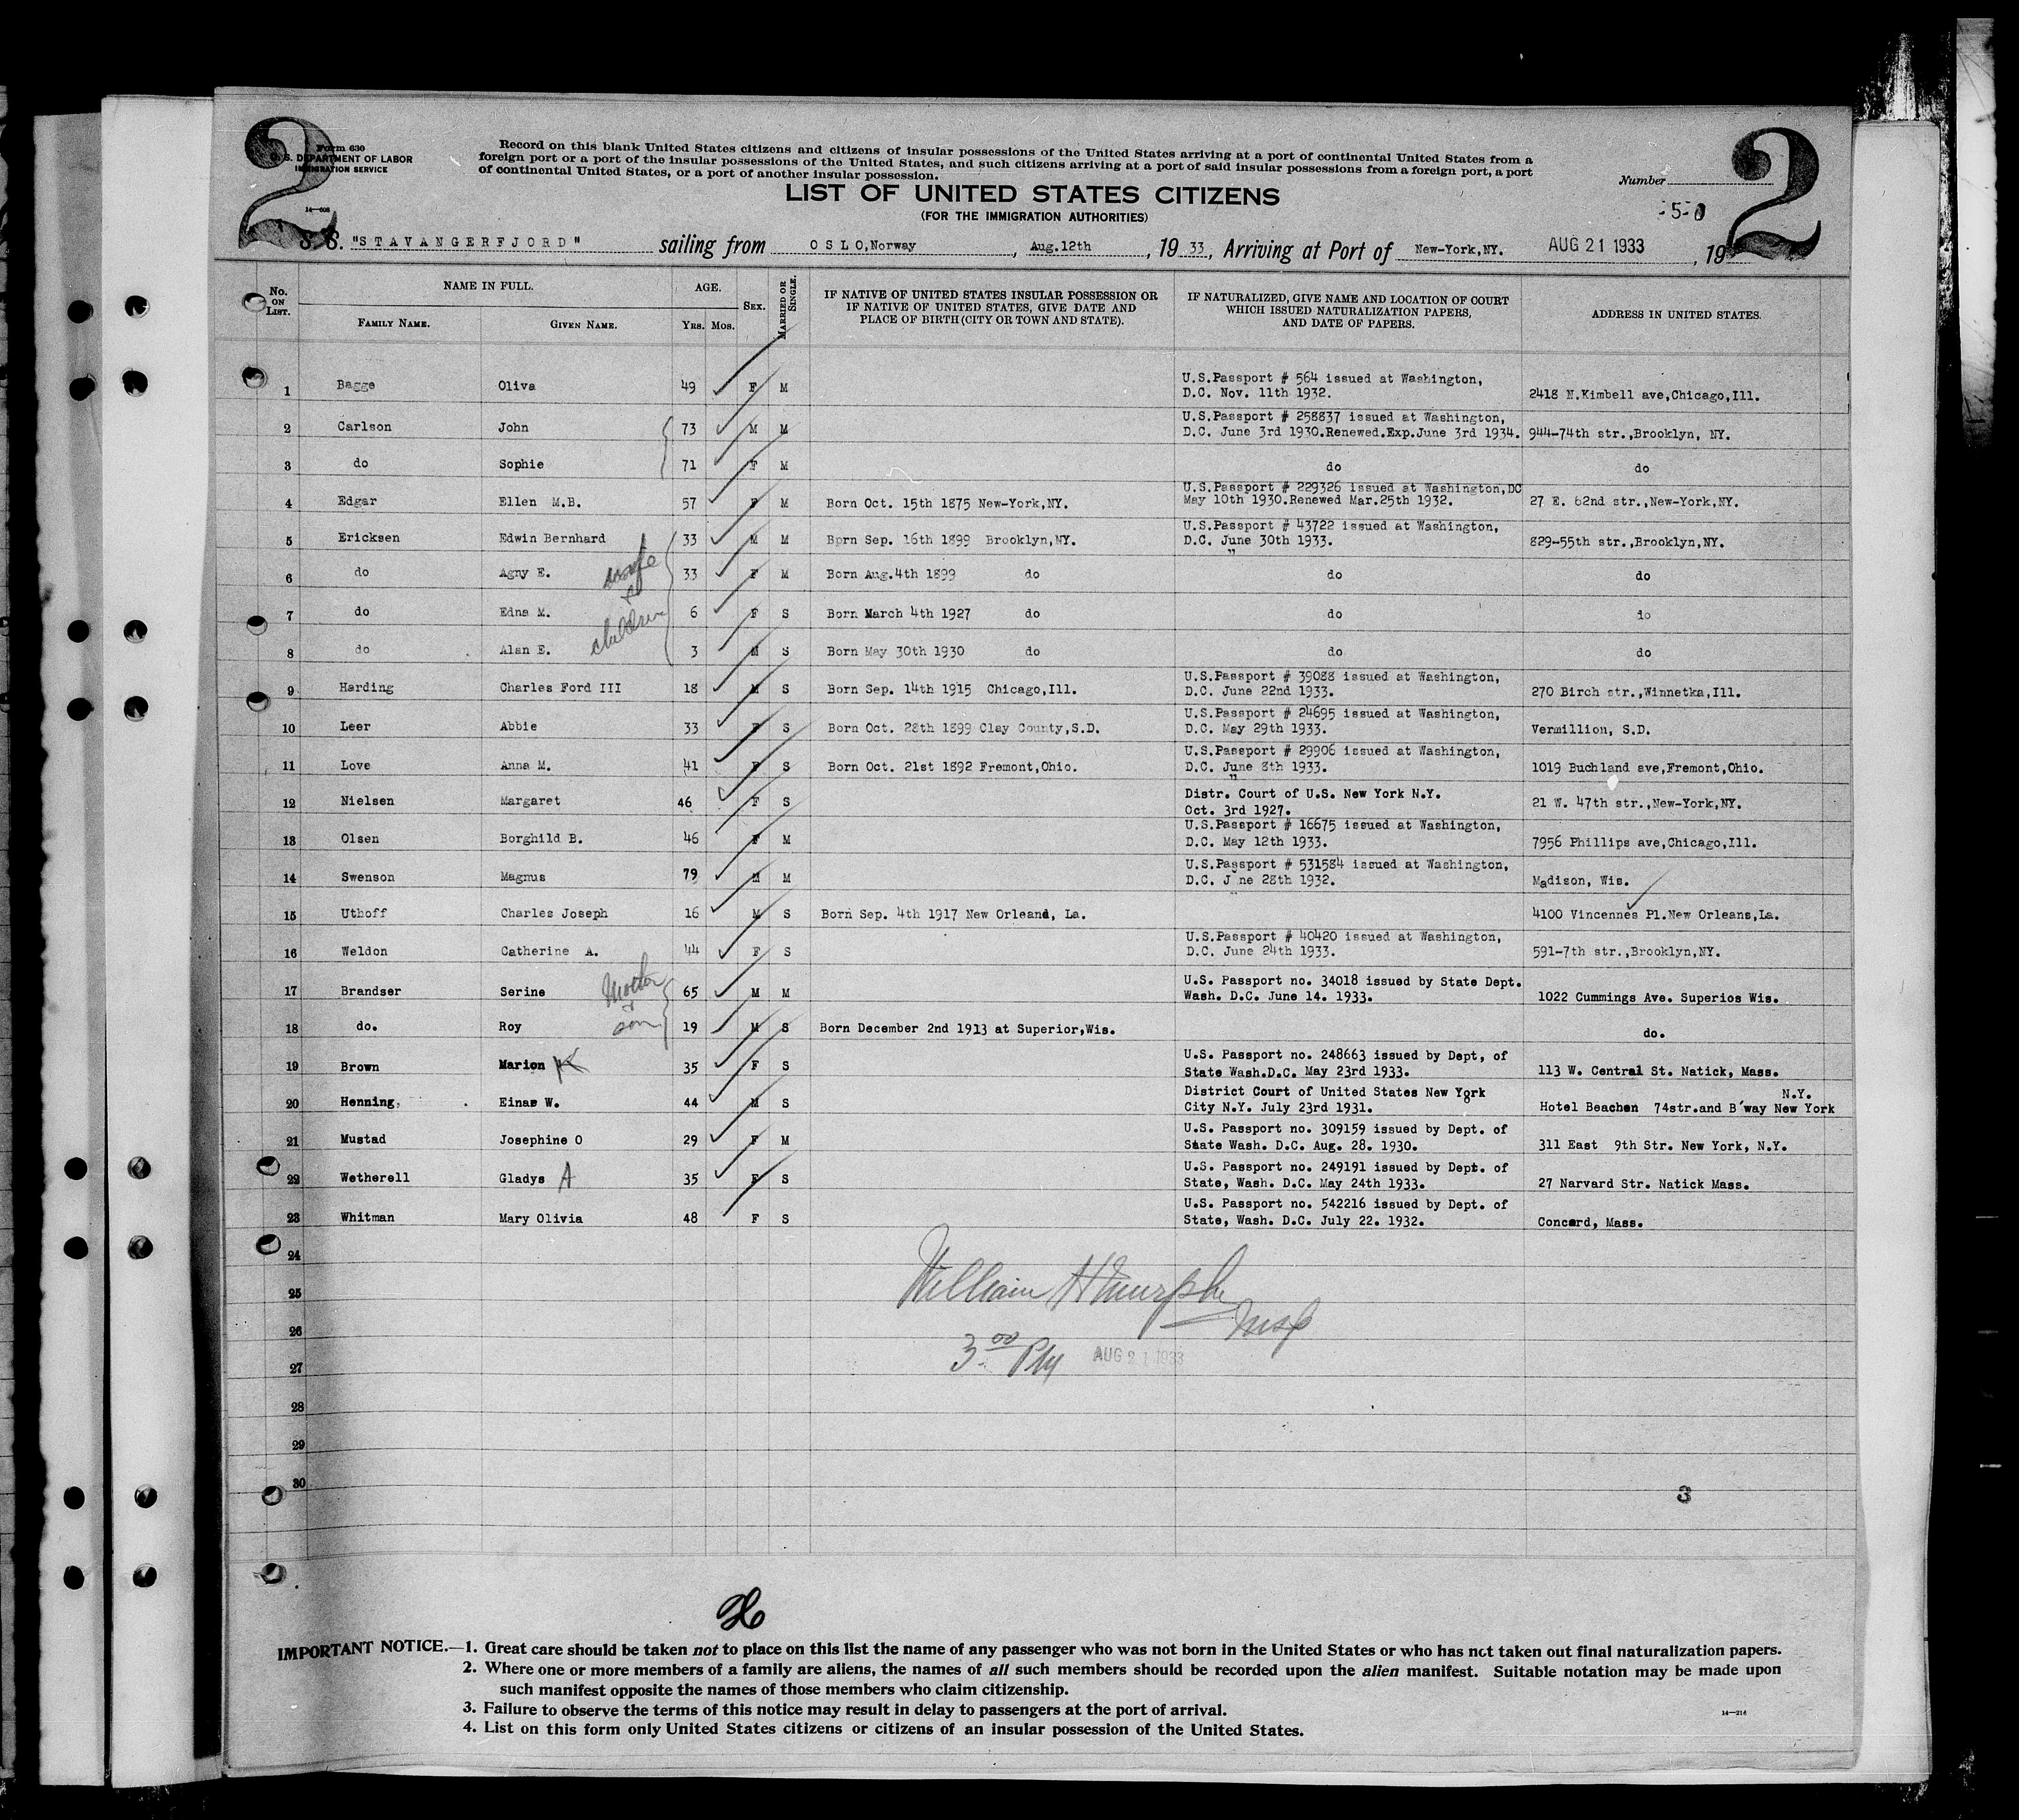 2 2
Form 630
U. S. DEPARTMENT OF LABOR
IMMIGRATION SERVICE
14—608
Record on this blank United States citizens and citizens of insular possessions of the United States arriving at a port of continental United States from a
foreign port or a port of the insular possessions of the United States, and such citizens arriving at a port of said insular possessions from a foreign port, a port
of continental United States, or a port of another insular possession.
Number
LIST OF UNITED STATES CITIZENS
(FOR THE IMMIGRATION AUTHORITIES)
-5-0
S. S. "STAVANGERFJORD" sailing from OSLO,Norway, Aug.12th, 1933, Arriving at Port of New-York,NY. AUG 21 1933, 19
No. ON LIST. NAME IN FULL. AGE. SEX. MARRIED OR SINGLE. IF NATIVE OF UNITED STATES INSULAR POSSESSION OR IF NATIVE OF UNITED STATES, GIVE DATE AND PLACE OF BIRTH (CITY OR TOWN AND STATE). IF NATURALIZED, GIVE NAME AND LOCATION OF COURT WHICH ISSUED NATURALIZATION PAPERS, AND DATE OF PAPERS. ADDRESS IN UNITED STATES.
FAMILY NAME. GIVEN NAME. YRS. MOS.
1 Bagge Oliva 49 F M U.S.Passport # 564 issued at Washington,
D.C. Nov. 11th 1932. 2418 N.Kimbell ave,Chicago,Ill.
2 Carlson John 73 M M U.S.Passport # 258837 issued at Washington,
D.C. June 3rd 1930.Renewed.Exp.June 3rd 1934. 944-74th str.,Brooklyn, NY.
3 do Sophie 71 F M do do
4 Edgar Ellen M.B. 57 F M Born Oct. 15th 1875 New-York,NY. U.S.Passport # 229326 issued at Washington,DC
May 10th 1930.Renewed Mar.25th 1932. 27 E. 62nd str.,New-York,NY.
5 Ericksen Edwin Bernhard 33 M M Born Sep. 16th 1899 Brooklyn,NY. U.S.Passport # 43722 issued at Washington,
D.C. June 30th 1933. 829-55th str.,Brooklyn,NY.
6 do Agny E. wife 33 F M Born Aug.4th 1899 do do do
&
7 do Edna M. children 6 F S Born March 4th 1927 do do do
8 do Alan E. 3 M S Born May 30th 1930 do do do
9 Harding Charles Ford III 18 M S Born Sep. 14th 1915 Chicago,Ill. U.S.Passport # 39088 issued at Washington,
D.C. June 22nd 1933. 270 Birch str.,Winnetka,Ill.
10 Leer Abbie 33 F S Born Oct. 28th 1899 Clay County,S.D. U.S.Passport # 24695 issued at Washington,
D.C. May 29th 1933. Vermillion, S.D.
11 Love Anna M. 41 F S Born Oct. 21st 1892 Fremont,Ohio. U.S.Passport # 29906 issued at Washington,
D.C. June 8th 1933. 1019 Buchland ave,Fremont,Ohio.
12 Nielsen Margaret 46 F S Distr. Court of U.S. New York N.Y.
Oct. 3rd 1927. 21 W. 47th str.,New-York,NY.
13 Olsen Borghild B. 46 F M U.S.Passport # 16675 issued at Washington,
D.C. May 12th 1933. 7956 Phillips ave,Chicago,Ill.
14 Swenson Magnus 79 M M U.S.Passport # 531584 issued at Washington,
D.C. J ne 28th 1932. Madison, Wis.
15 Uthoff Charles Joseph 16 M S Born Sep. 4th 1917 New Orleand, La. 4100 Vincennes Pl.New Orleans,La.
16 Weldon Catherine A. 44 F S U.S.Passport # 40420 issued at Washington,
D.C. June 24th 1933. 591-7th str.,Brooklyn,NY.
17 Brandser Serine Mother 65 M M U.S. Passport no. 34018 issued by State Dept.
Wash. D.C. June 14. 1933. 1022 Cummings Ave. Superios Wis.
18 do. Roy son 19 M S Born December 2nd 1913 at Superior,Wis. do.
19 Brown Marion K 35 F S U.S. Passport no. 248663 issued by Dept, of
State Wash.D.C. May 23rd 1933. 113 W. Central St. Natick, Mass.
20 Henning. Einar W. 44 M S District Court of United States New York
City N.Y. July 23rd 1931. Hotel Beachen 74str.and B'way New York N.Y.
21 Mustad Josephine O 29 F M U.S. Passport no. 309159 issued by Dept. of
State Wash. D.C. Aug. 28. 1930. 311 East 9th Str. New York, N.Y.
22 Wetherell Gladys A 35 F S U.S. Passport no. 249191 issued by Dept. of
State, Wash. D.C. May 24th 1933. 27 Narvard Str. Natick Mass.
23 Whitman Mary Olivia 48 F S U.S. Passport no. 542216 issued by Dept. of
State, Wash. D.C. July 22. 1932. Concord, Mass.
24
25 William H Murphy
26 Insp
27 3 00 PM AUG 21 1933
28
29
30
3
IMPORTANT NOTICE.—1. Great care should be taken not to place on this list the name of any passenger who was not born in the United States or who has not taken out final naturalization papers.
2. Where one or more members of a family are aliens, the names of all such members should be recorded upon the alien manifest. Suitable notation may be made upon
such manifest opposite the names of those members who claim citizenship.
3. Failure to observe the terms of this notice may result in delay to passengers at the port of arrival.
4. List on this form only United States citizens or citizens of an insular possession of the United States.
14—214